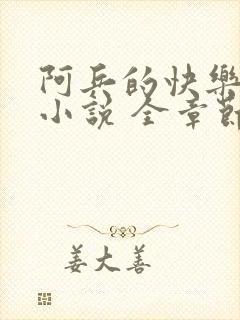 阿兵的快樂
小說 全章節
姜大善